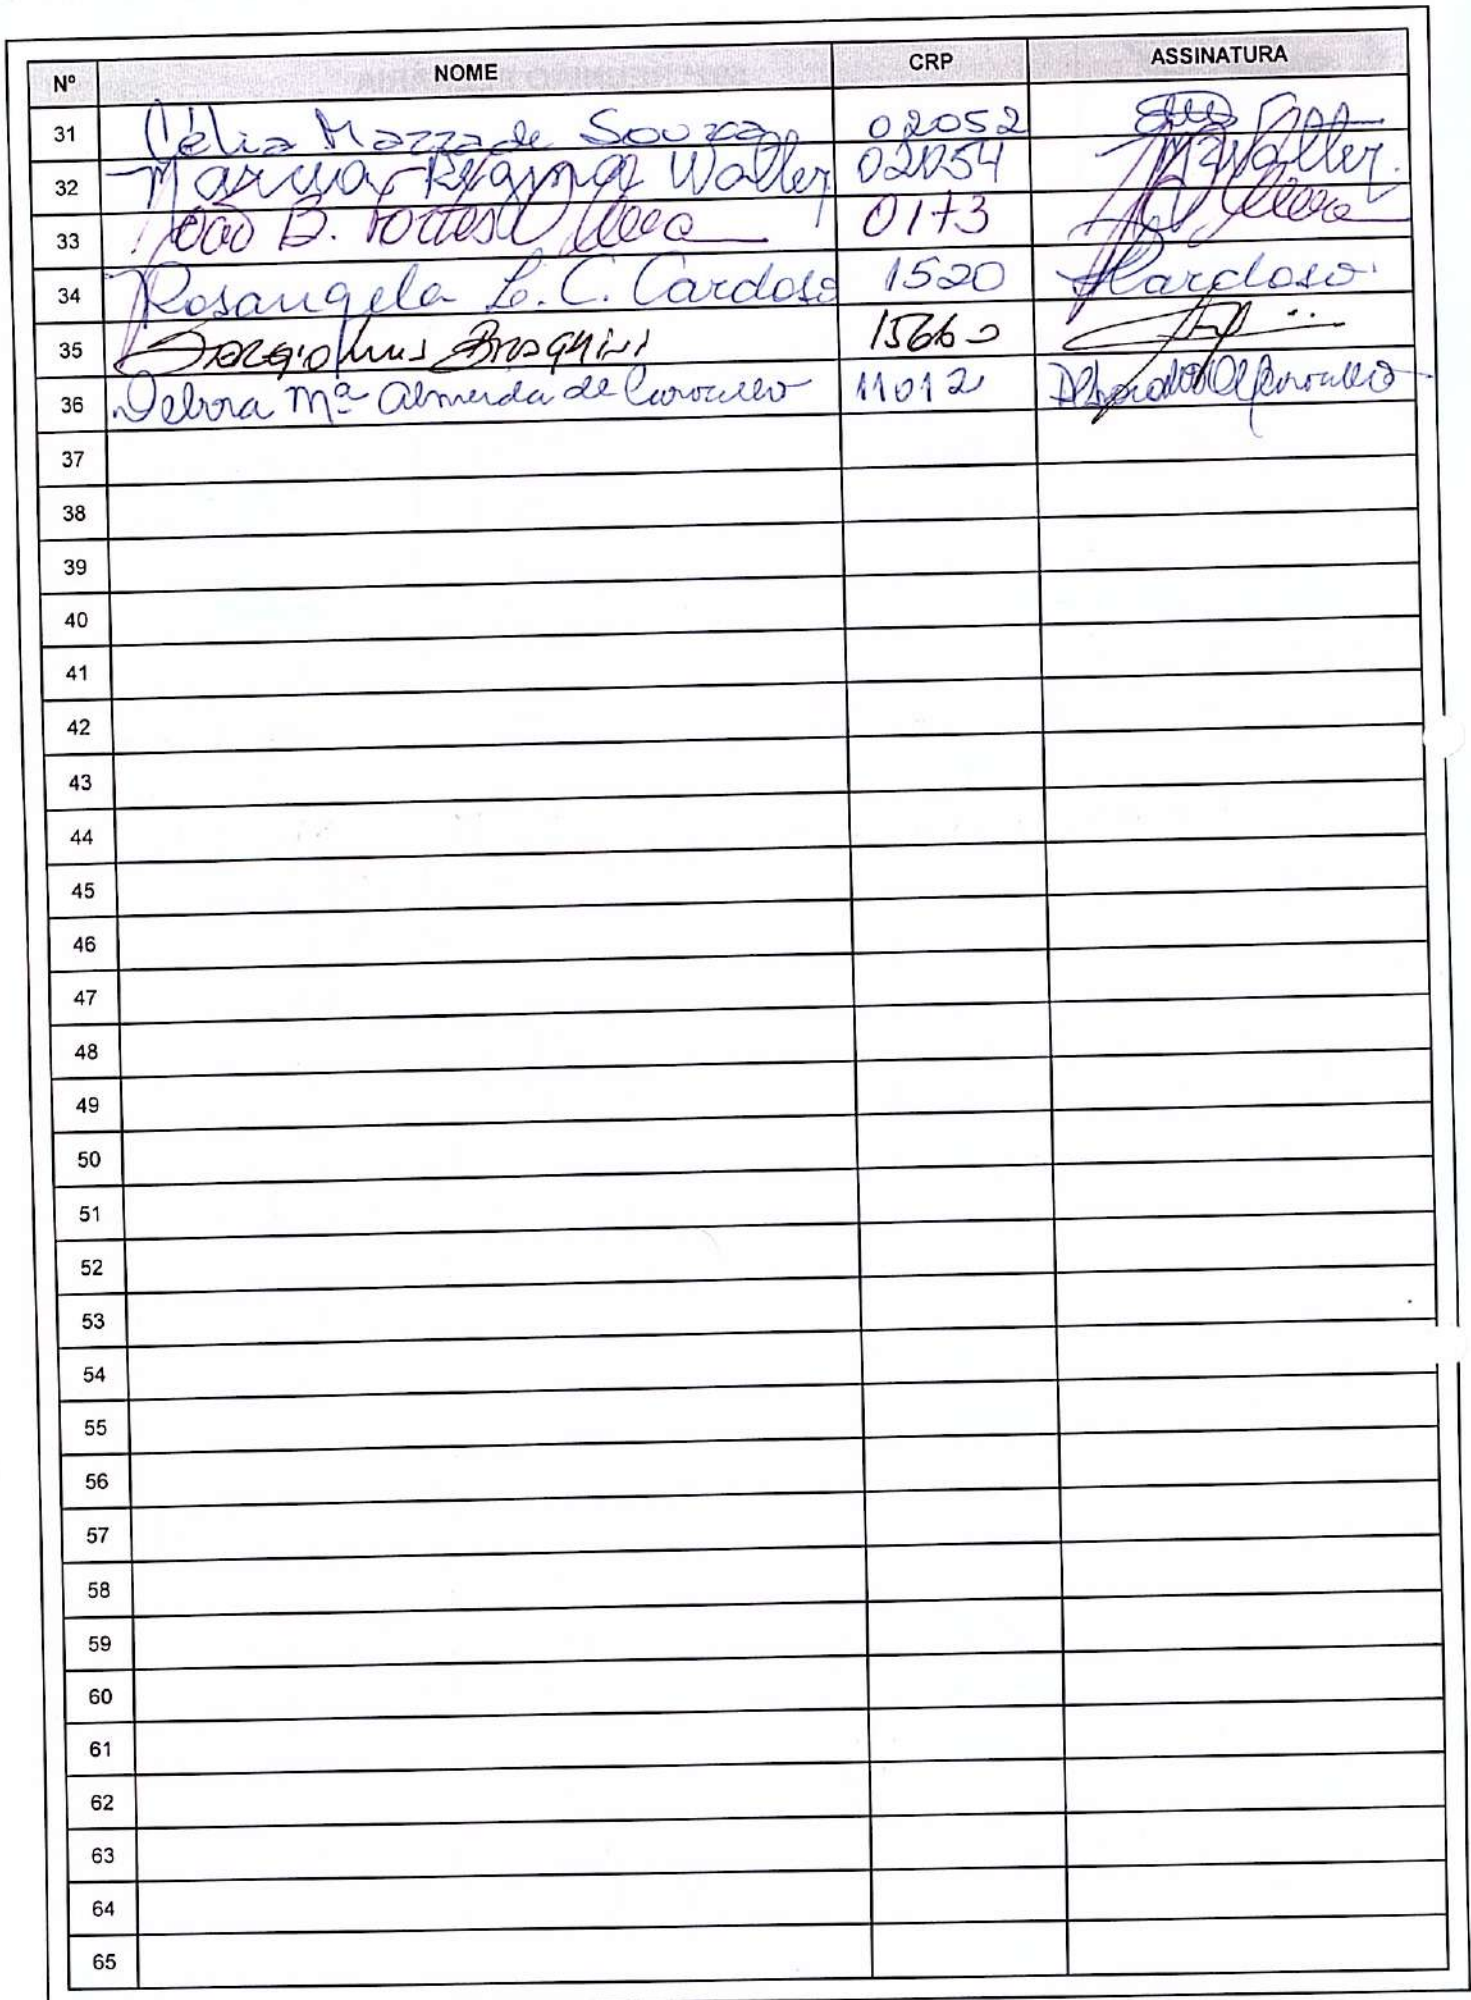 Nº NOME CRP ASSINATURA
31 Célia Mazza de Souza 02052
32 Marcia Regina Waller 02054 MRWaller.
33 João B. Fortes 0173
34 Rosangela L. C. Cardoso 1520 Cardoso
35 Sergio Luis Braghini 15660
36 Debora Mª Almeida de Carvalho 11012
37
38
39
40
41
42
43
44
45
46
47
48
49
50
51
52
53
54
55
56
57
58
59
60
61
62
63
64
65